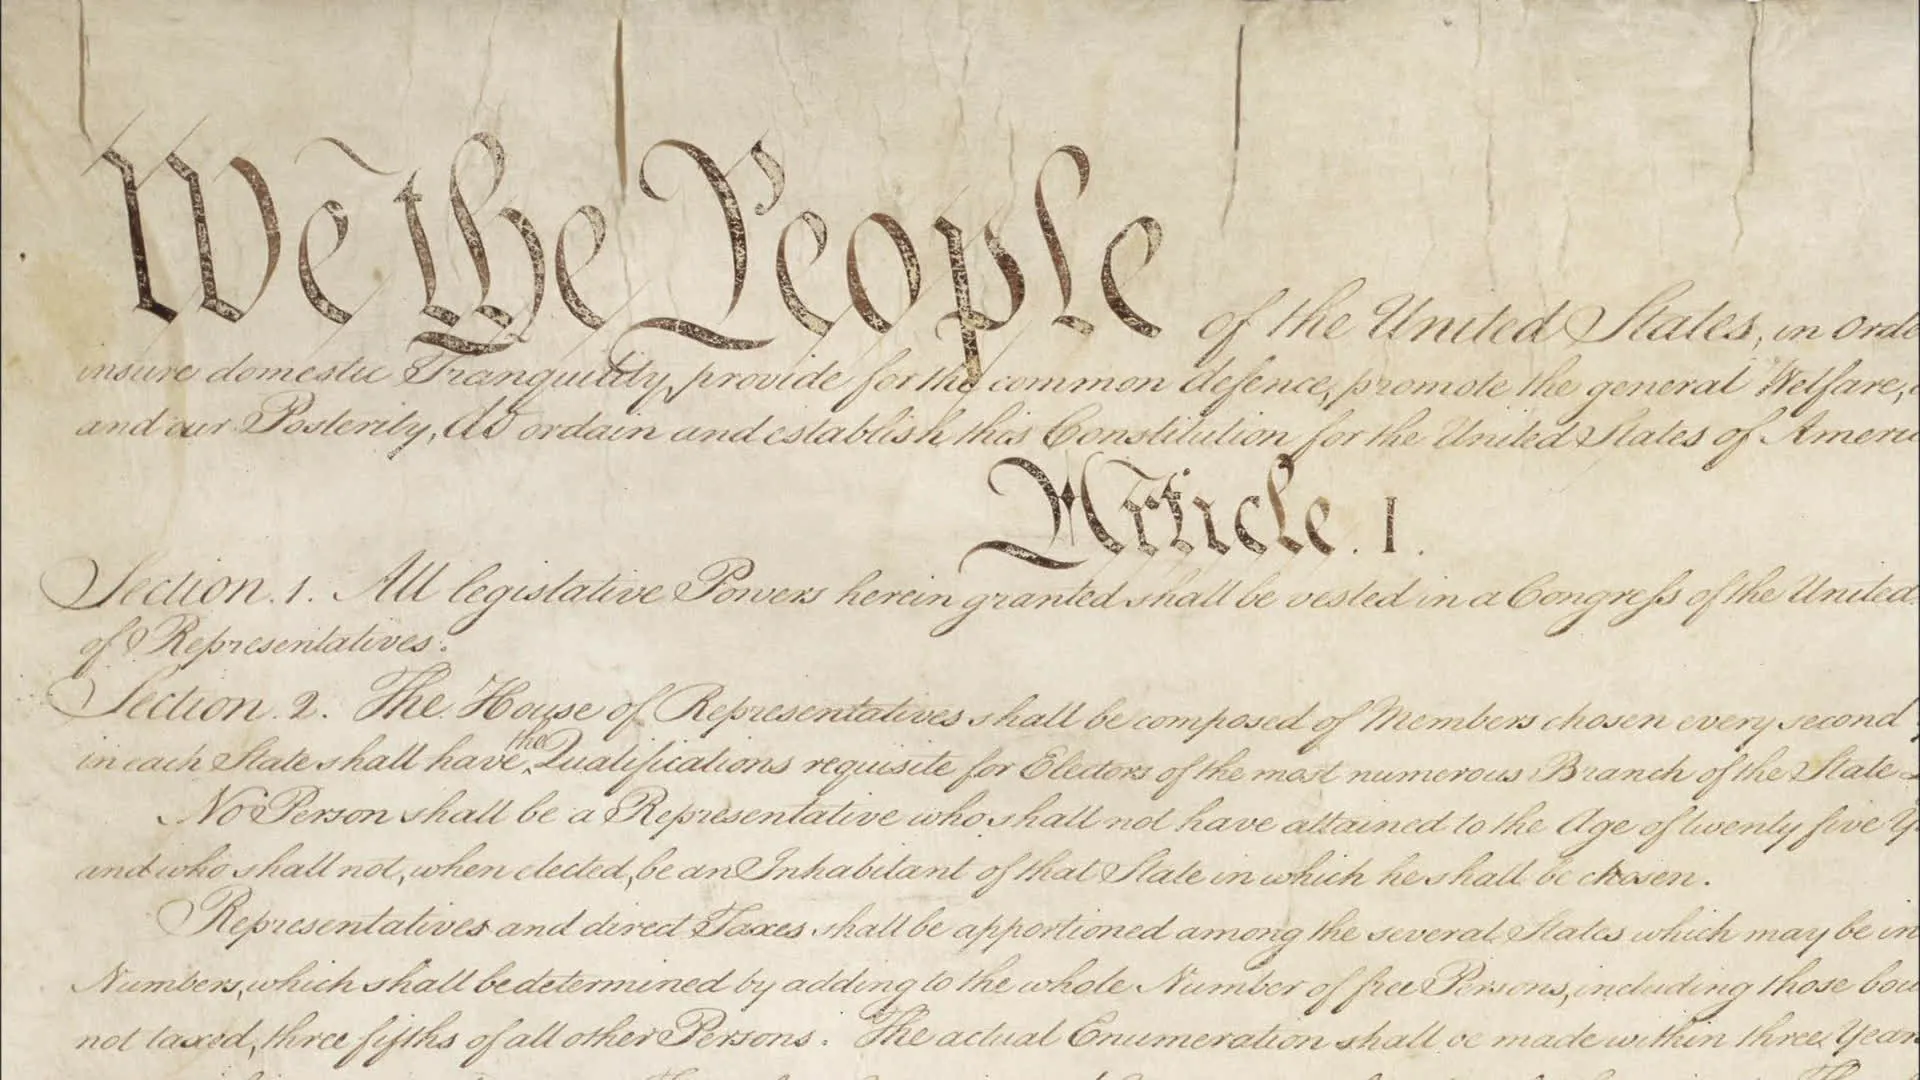 We the People of the United States, in Orde
insure domestic Tranquility, provide for the common defence, promote the general Welfare,
and our Posterity, do ordain and establish this Constitution for the United States of Americ
Article. I.
Section. 1. All legislative Powers herein granted shall be vested in a Congress of the United
of Representatives.
Section. 2. The House of Representatives shall be composed of Members chosen every second
in each State shall have the Qualifications requisite for Electors of the most numerous Branch of the State
No Person shall be a Representative who shall not have attained to the Age of twenty five Y
and who shall not, when elected, be an Inhabitant of that State in which he shall be chosen.
Representatives and direct Taxes shall be apportioned among the several States which may be in
Numbers, which shall be determined by adding to the whole Number of free Persons, including those bou
not taxed, three fifths of all other Persons. The actual Enumeration shall be made within three Years